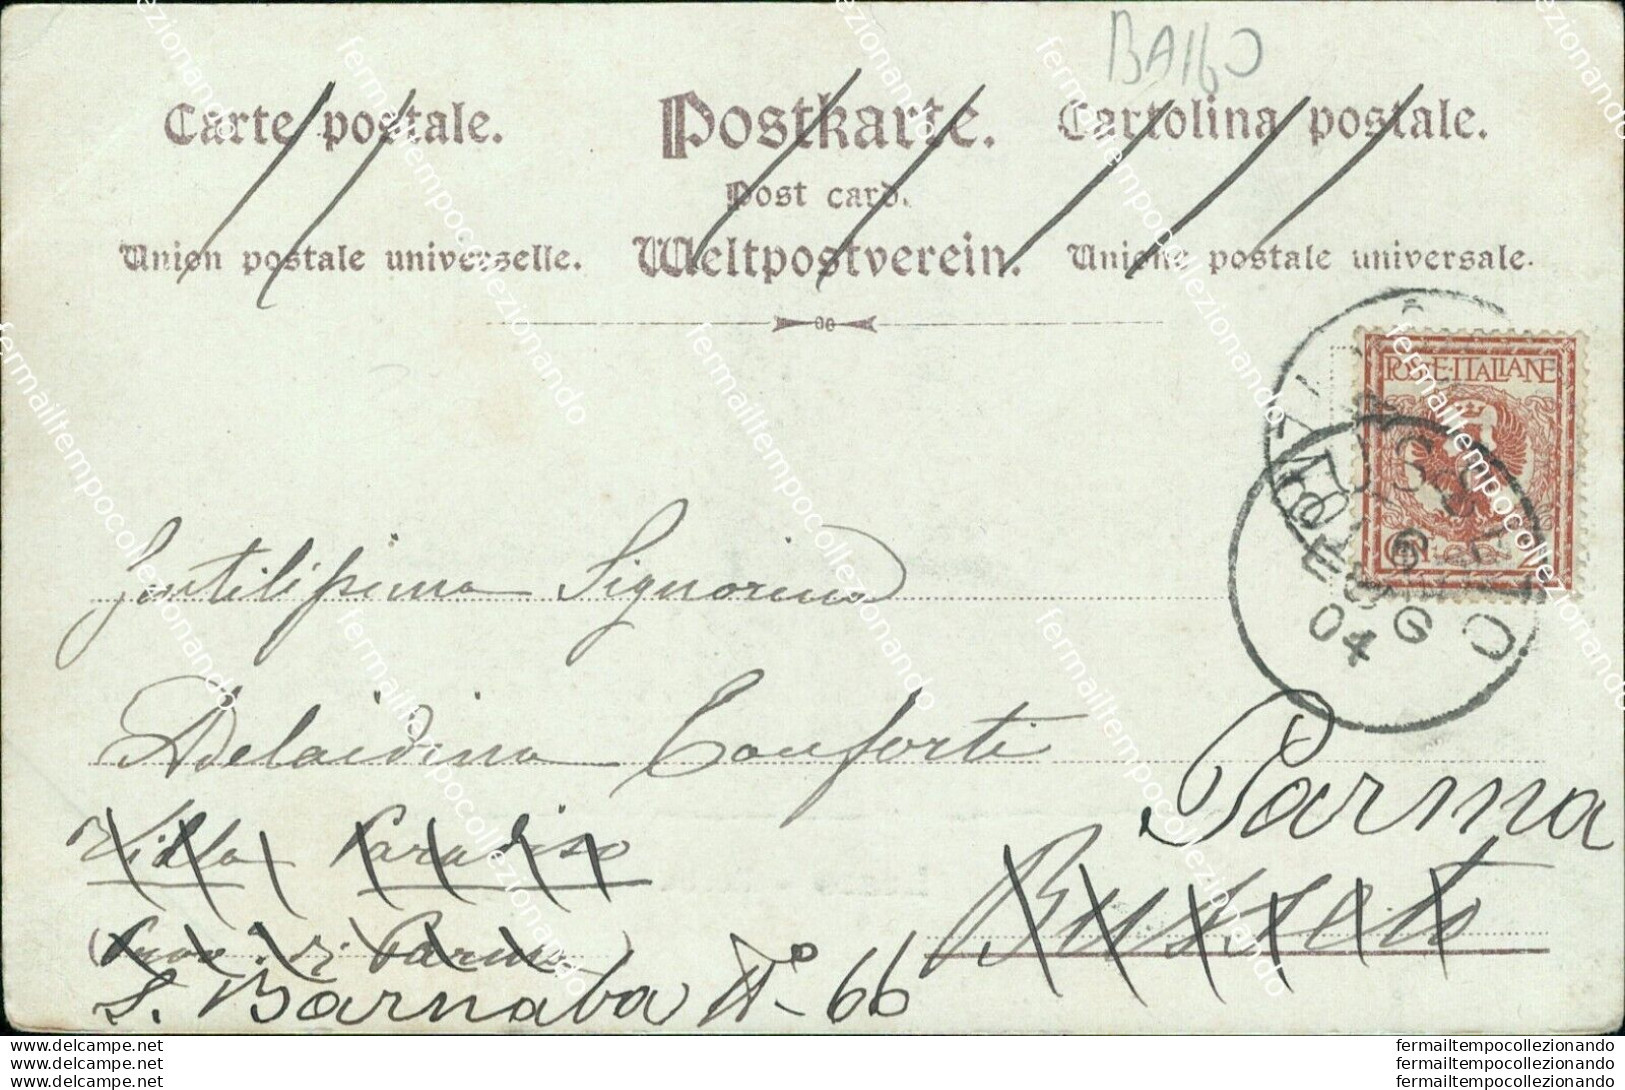 BA160
Carte postale. Postkarte. Cartolina postale.
Post card.
Union postale universelle. Weltpostverein. Unione postale universale.
POSTE·ITALIANE
BUSSETO
6
04
Gentilissima Signorina
Adelaidina Conforti
Parma
Villa Paradiso
Busseto
(Prov. di Parma)
S. Barnaba N° 66
www.delcampe.net
www.delcampe.net
www.delcampe.net
fermailtempocollezionando
fermailtempocollezionando
fermailtempocollezionando